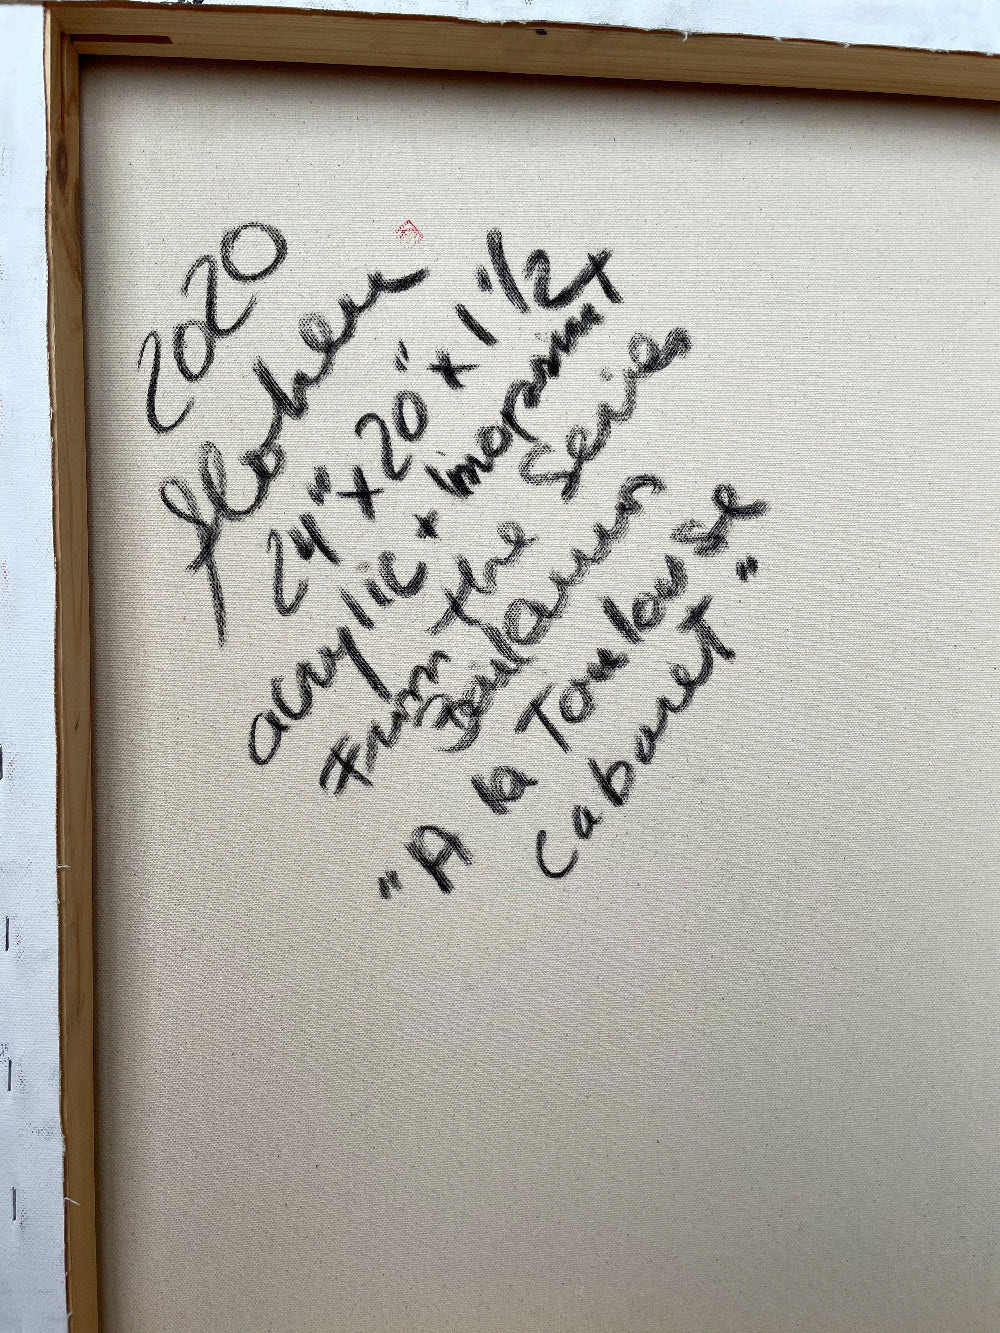 2020
24" x 20" x 1 1/2 x
acrylic x
From the Series
"A la Toulouse
Cabaret"